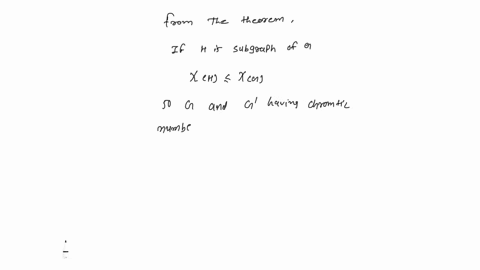 from The theorem,
If H is subgraph of G
χ(H) ≤ χ(G)
so G and G' having chromtic
numbe